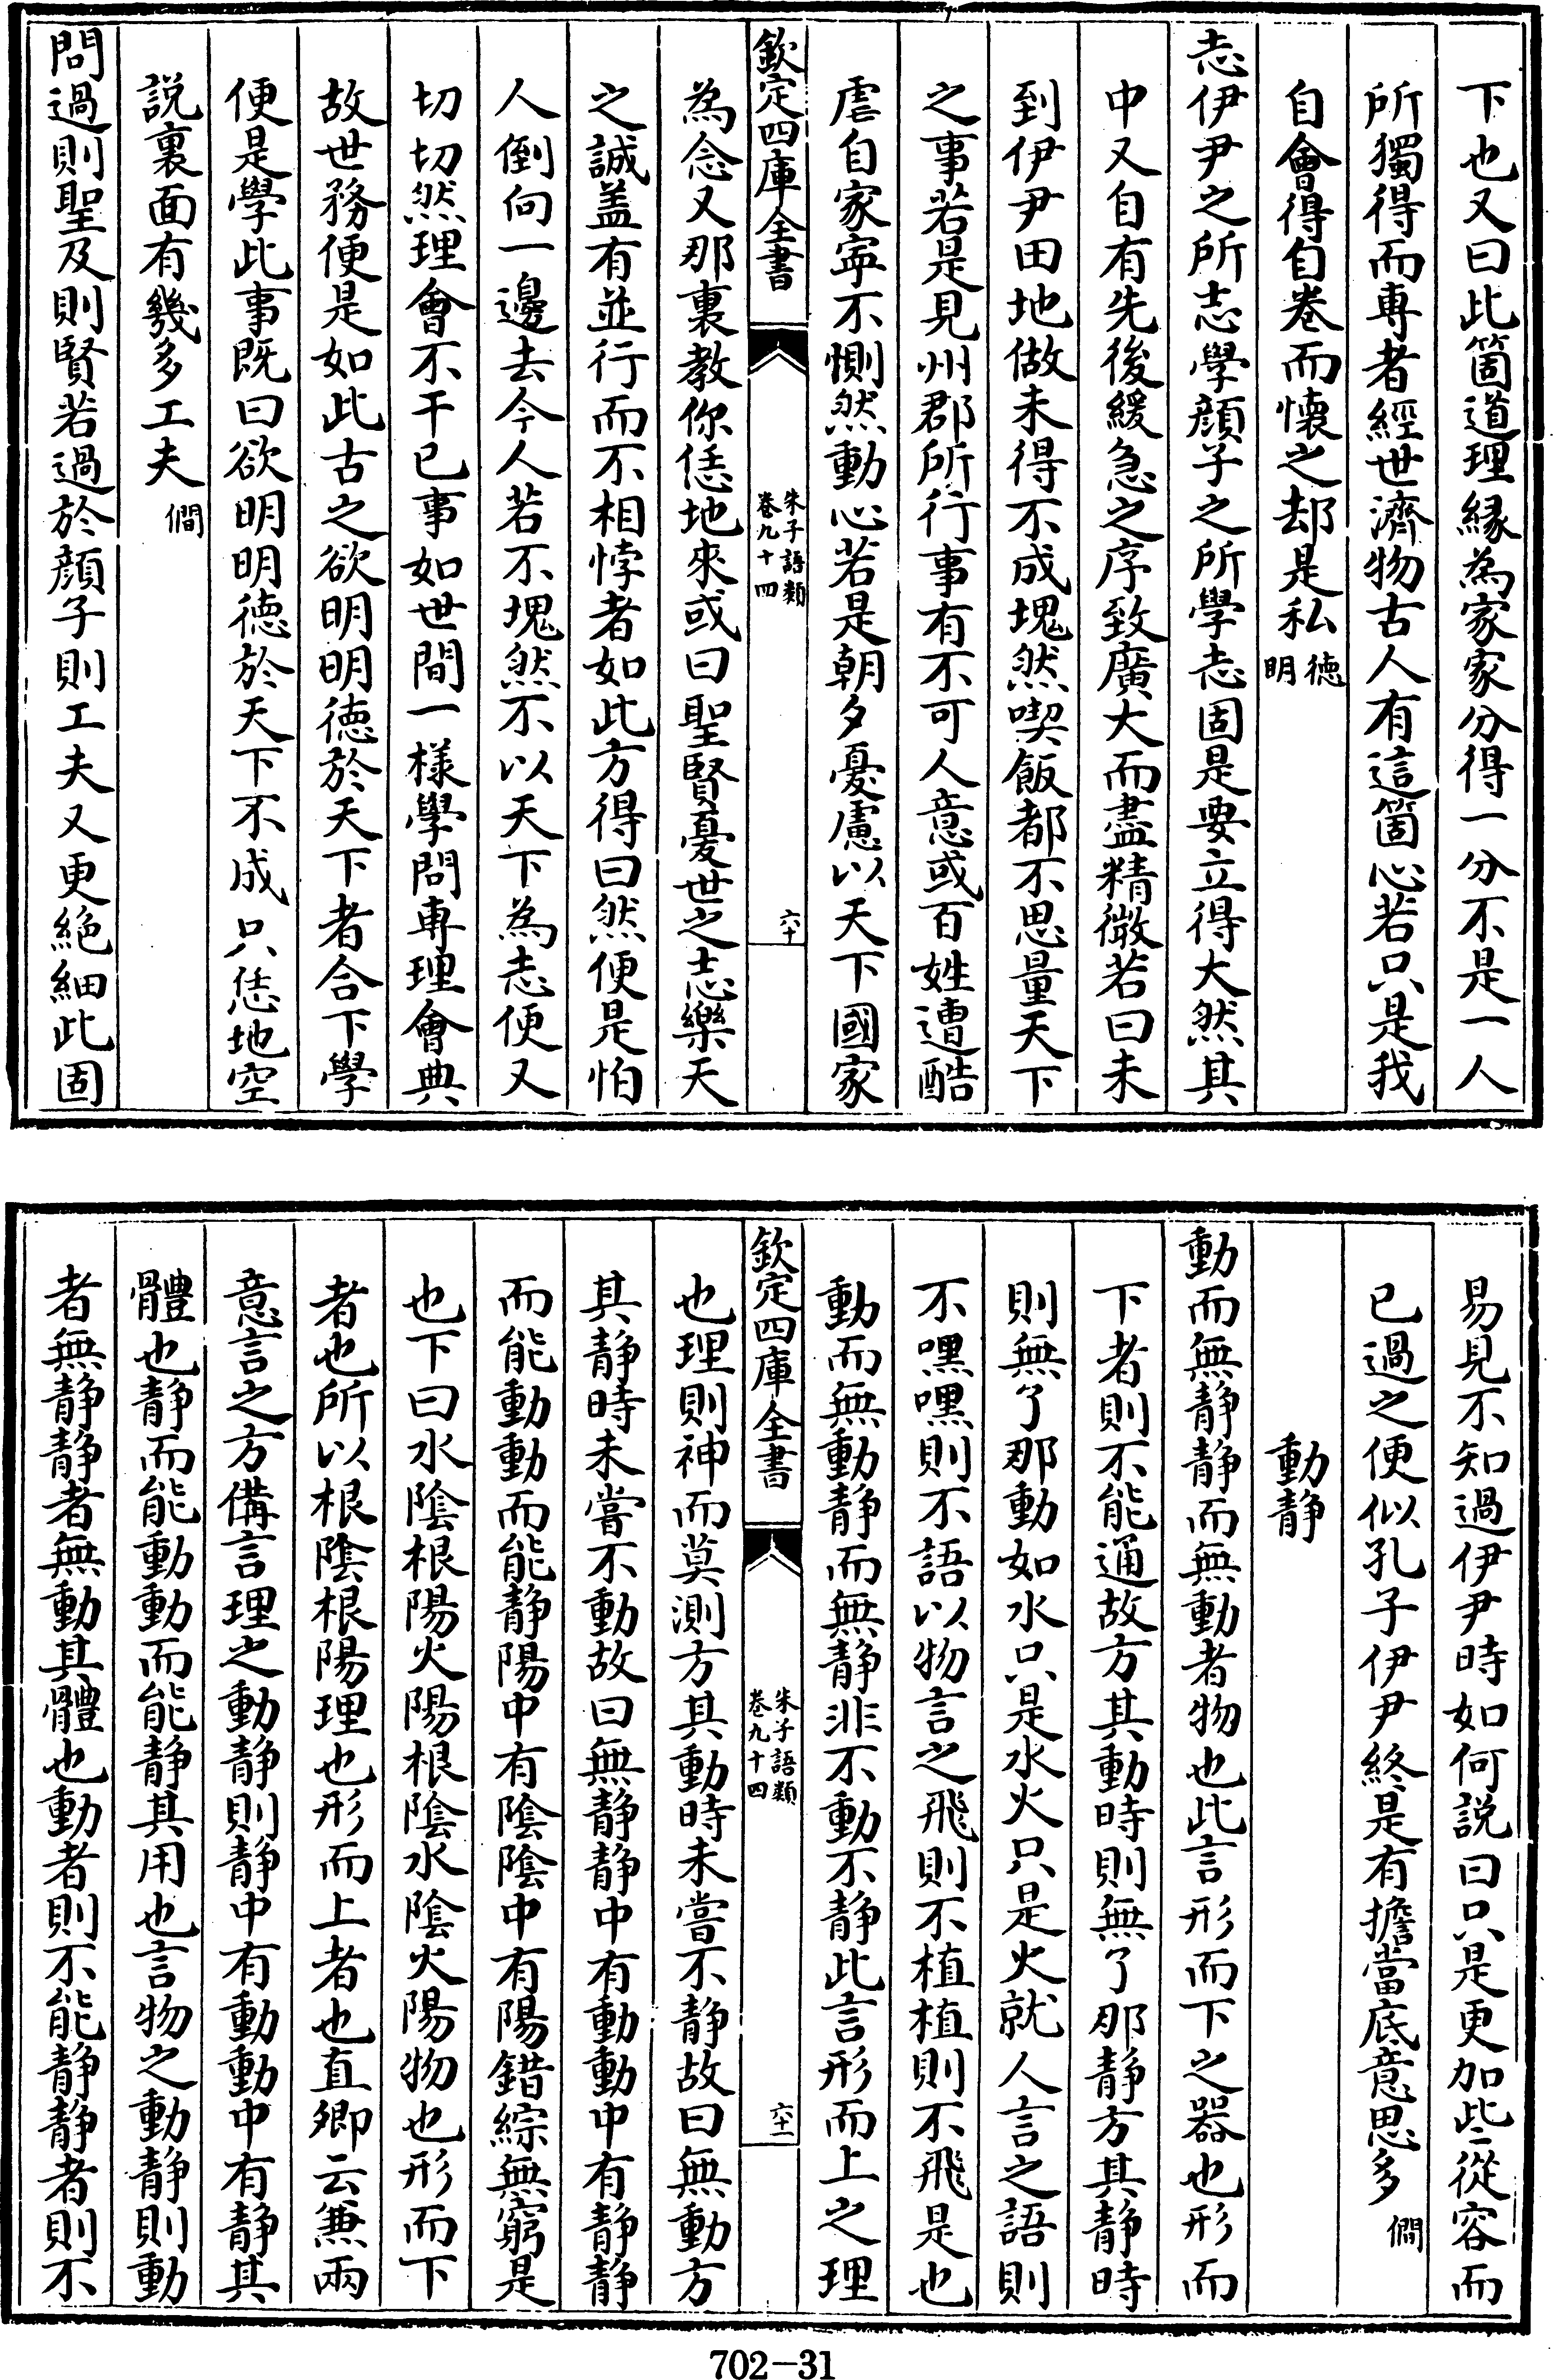 下也又曰此箇道理緣為家家分得一分不是一人
所獨得而專者經世濟物古人有這箇心若只是我
自會得自卷而懷之却是私德明
志伊尹之所志學顔子之所學志固是要立得大然其
中又自有先後緩急之序致廣大而盡精微若曰未
到伊尹田地做未得不成塊然喫飯都不思量天下
之事若是見州郡所行事有不可人意或百姓遭酷
虐自家寧不惻然動心若是朝夕憂慮以天下國家
欽定四庫全書
朱子語類
卷九十四
六十
為念又那裏教你恁地來或曰聖賢憂世之志樂天
之誠盖有並行而不相悖者如此方得曰然便是怕
人倒向一邊去今人若不塊然不以天下為志便又
切切然理會不干已事如世間一様學問専理會典
故世務便是如此古之欲明明徳於天下者合下學
便是學此事既曰欲明明徳於天下不成只恁地空
説裏面有幾多工夫僩
問過則聖及則賢若過於顔子則工夫又更絶細此固
易見不知過伊尹時如何説曰只是更加些從容而
已過之便似孔子伊尹終是有擔當底意思多僩
動静
動而無静静而無動者物也此言形而下之器也形而
下者則不能通故方其動時則無了那静方其静時
則無了那動如水只是水火只是火就人言之語則
不嘿嘿則不語以物言之飛則不植植則不飛是也
動而無動静而無静非不動不静此言形而上之理
欽定四庫全書
朱子語類
卷九十四
六十一
也理則神而莫測方其動時未嘗不静故曰無動方
其静時未嘗不動故曰無静静中有動動中有静静
而能動動而能静陽中有隂隂中有陽錯綜無窮是
也下曰水隂根陽火陽根隂水隂火陽物也形而下
者也所以根隂根陽理也形而上者也直卿云兼兩
意言之方備言理之動静則静中有動動中有静其
體也静而能動動而能静其用也言物之動静則動
者無静静者無動其體也動者則不能静静者則不
702-31